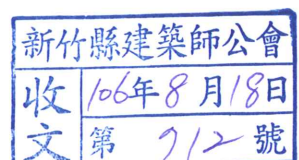 新竹縣建築師公會
收文
106年8月18日
第912號